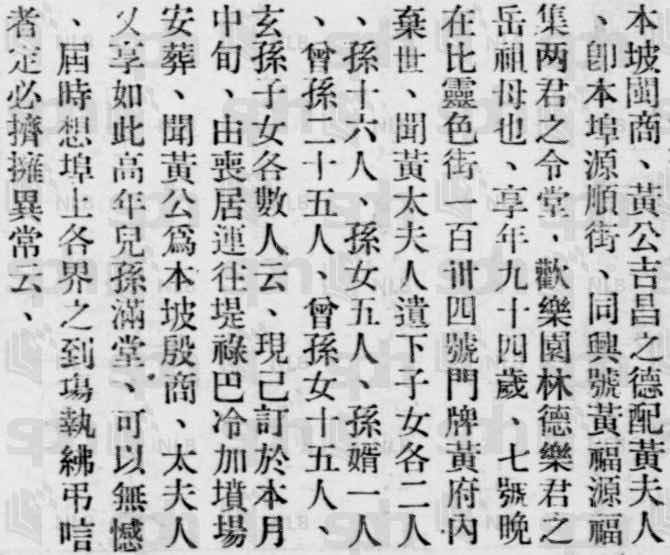 本坡閩商、黃公吉昌之德配黃夫人
、卽本埠源順街、同興號黃福源福
集两君之令堂、歡樂園林德樂君之
岳祖母也、享年九十四歲、七號晚
在比靈色街一百卌四號門牌黃府內
棄世、聞黃太夫人遺下子女各二人
、孫十六人、孫女五人、孫婿一人
、曾孫二十五人、曾孫女十五人、
玄孫子女各數人云、現已訂於本月
中旬、由喪居運往堤祿巴冷加墳場
安葬、聞黃公爲本坡殷商、太夫人
又享如此高年兒孫滿堂、可以無憾
、屆時想埠上各界之到塲執紼弔唁
者定必擠擁異常云、